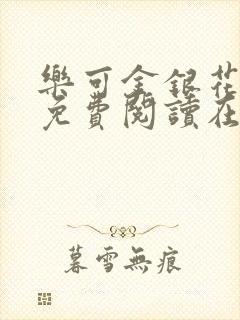 樂可金銀花
免費閱讀在
暮雪無痕